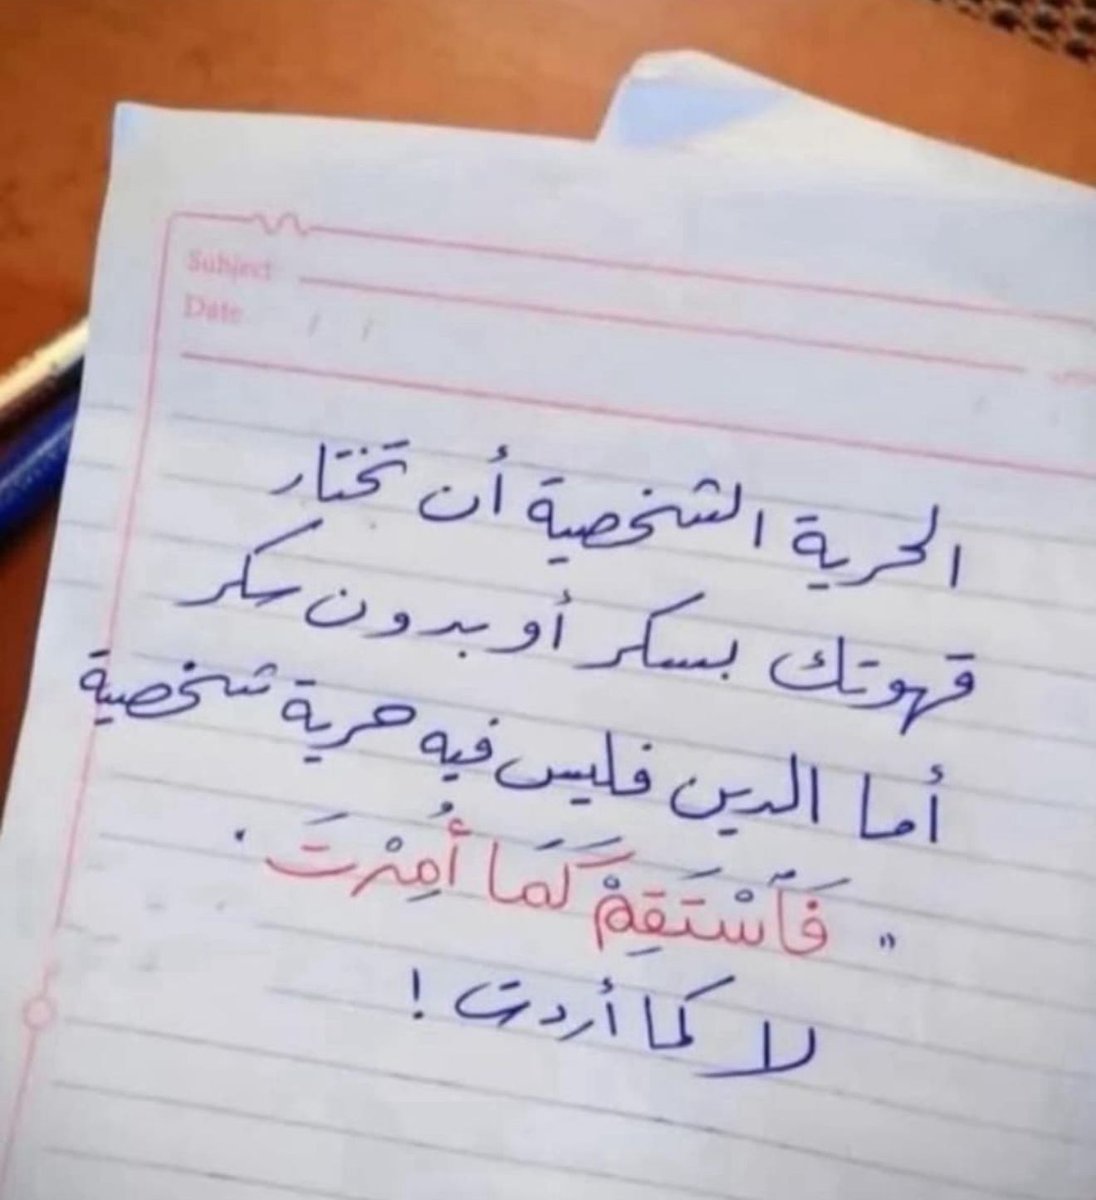 Subject
Date / /
الحرية الشخصية أن تختار
قهوتك بسكر أو بدون سكر
أما الدين فليس فيه حرية شخصية
" فَٱسْتَقِمْ كَمَا أُمِرْتَ .
لا كما أردت !